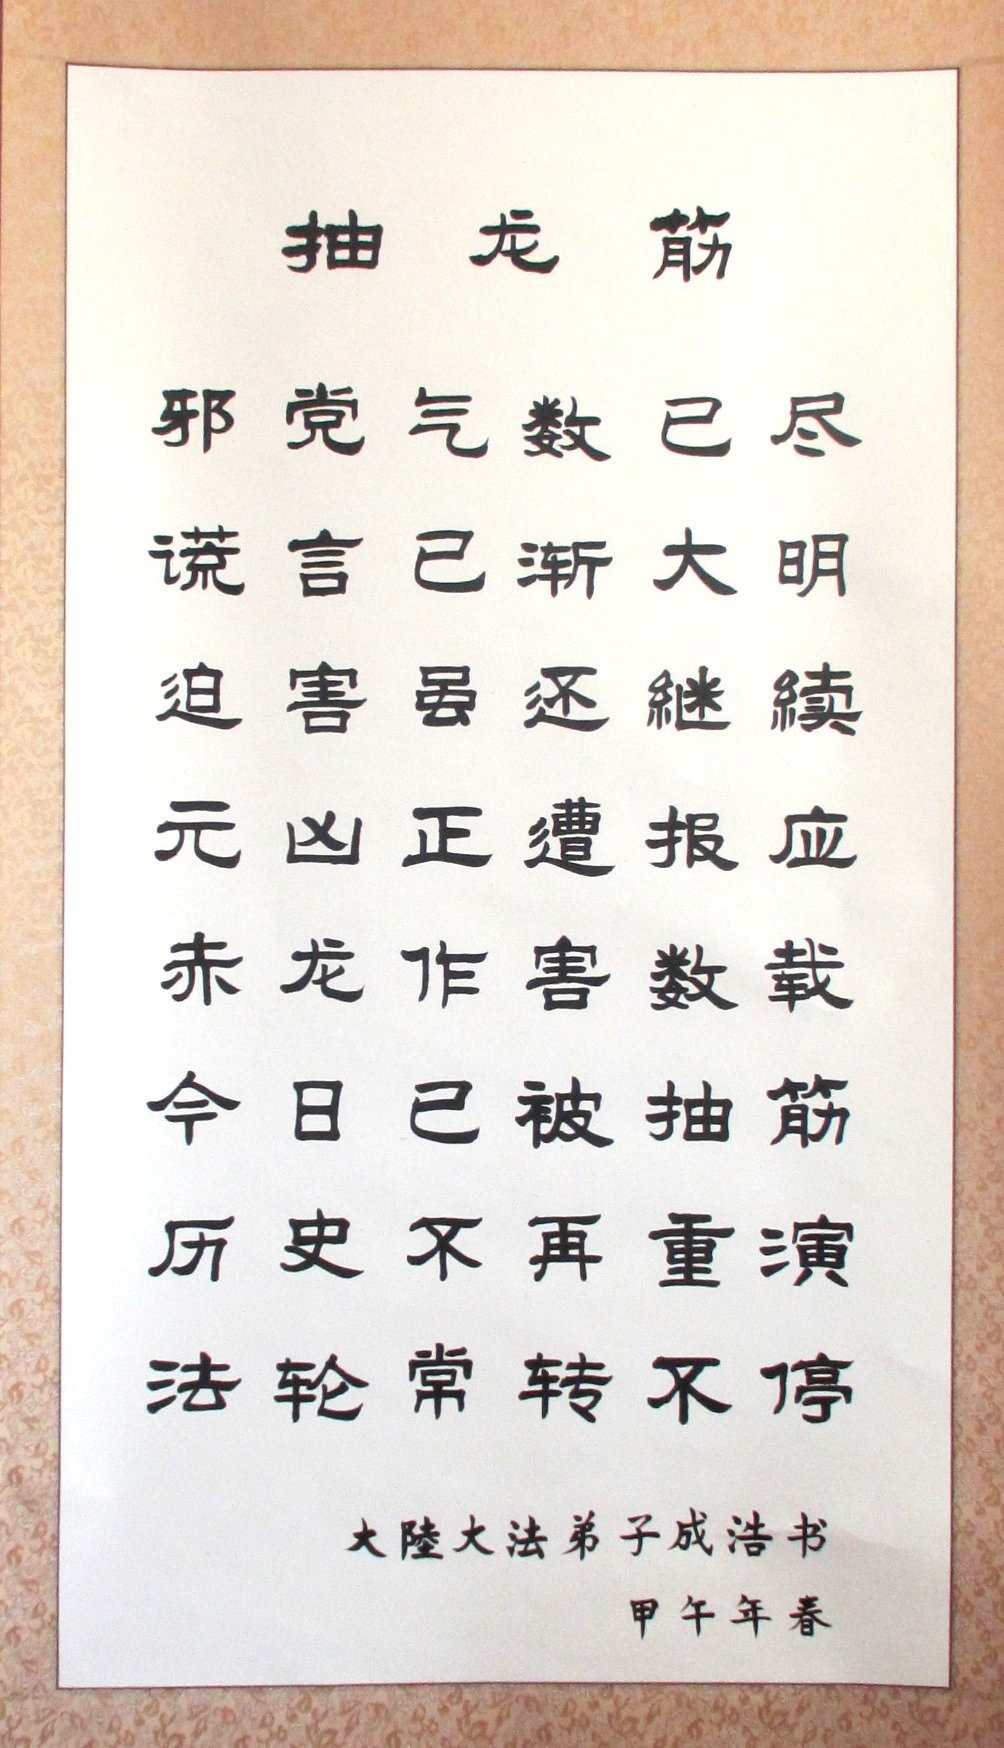 抽龙筋
邪党气数已尽
谎言已渐大明
迫害虽还継续
元凶正遭报应
赤龙作害数载
今日已被抽筋
历史不再重演
法轮常转不停
大陸大法弟子成浩书
甲午年春